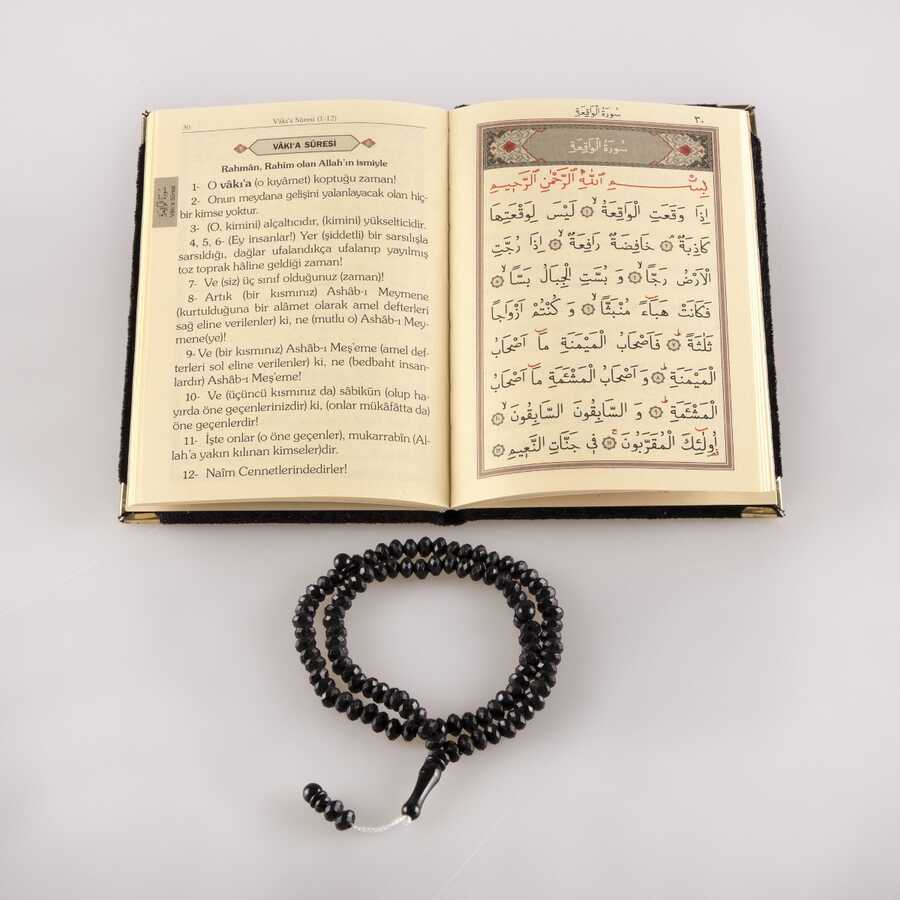 30
Vâkı'a Sûresi (1-12)
VÂKI'A SÛRESİ
Rahmân, Rahîm olan Allah'ın ismiyle
1- O vâkı'a (o kıyâmet) koptuğu zaman!
2- Onun meydana gelişini yalanlayacak olan hiç-
bir kimse yoktur.
3- (O, kimini) alçaltıcıdır, (kimini) yükselticidir.
4, 5, 6- (Ey insanlar!) Yer (şiddetli) bir sarsılışla
sarsıldığı, dağlar ufalandıkça ufalanıp yayılmış
toz toprak hâline geldiği zaman!
7- Ve (siz) üç sınıf olduğunuz (zaman)!
8- Artık (bir kısmınız) Ashâb-ı Meymene
(kurtulduğuna bir alâmet olarak amel defterleri
sağ eline verilenler) ki, ne (mutlu o) Ashâb-ı Mey-
mene(ye)!
9- Ve (bir kısmınız) Ashâb-ı Meş'eme (amel def-
terleri sol eline verilenler) ki, ne (bedbaht insan-
lardır) Ashâb-ı Meş'eme!
10- Ve (üçüncü kısmınız da) sâbikûn (olup ha-
yırda öne geçenlerinizdir) ki, (onlar mükâfâtta da)
öne geçenlerdir!
11- İşte onlar (o öne geçenler), mukarrabîn (Al-
lah'a yakın kılınan kimseler)dir.
12- Naîm Cennetlerindedirler!
سورة الواقعة
Vâkı'a Sûresi
سُورَةُ الْوَاقِعَةِ
٣٠
سُورَةُ الْوَاقِعَةِ
بِسْمِ اللّٰهِ الرَّحْمٰنِ الرَّحِيمِ
اِذَا وَقَعَتِ الْوَاقِعَةُ ۙ ﴿١﴾ لَيْسَ لِوَقْعَتِهَا
كَاذِبَةٌ ۘ ﴿٢﴾ خَافِضَةٌ رَافِعَةٌ ۙ ﴿٣﴾ اِذَا رُجَّتِ
الْاَرْضُ رَجًّا ۙ ﴿٤﴾ وَ بُسَّتِ الْجِبَالُ بَسًّا ۙ ﴿٥﴾
فَكَانَتْ هَبَٓاءً مُنْبَثًّا ۙ ﴿٦﴾ وَ كُنْتُمْ اَزْوَاجًا
ثَلٰثَةً ۜ ﴿٧﴾ فَاَصْحَابُ الْمَيْمَنَةِ مَٓا اَصْحَابُ
الْمَيْمَنَةِ ۜ ﴿٨﴾ وَ اَصْحَابُ الْمَشْـَٔمَةِ مَٓا اَصْحَابُ
الْمَشْـَٔمَةِ ۜ ﴿٩﴾ وَ السَّابِقُونَ السَّابِقُونَ ۙ ﴿١٠﴾
اُولٰٓئِكَ الْمُقَرَّبُونَ ۚ ﴿١١﴾ فِي جَنَّاتِ النَّعِيمِ ﴿١٢﴾